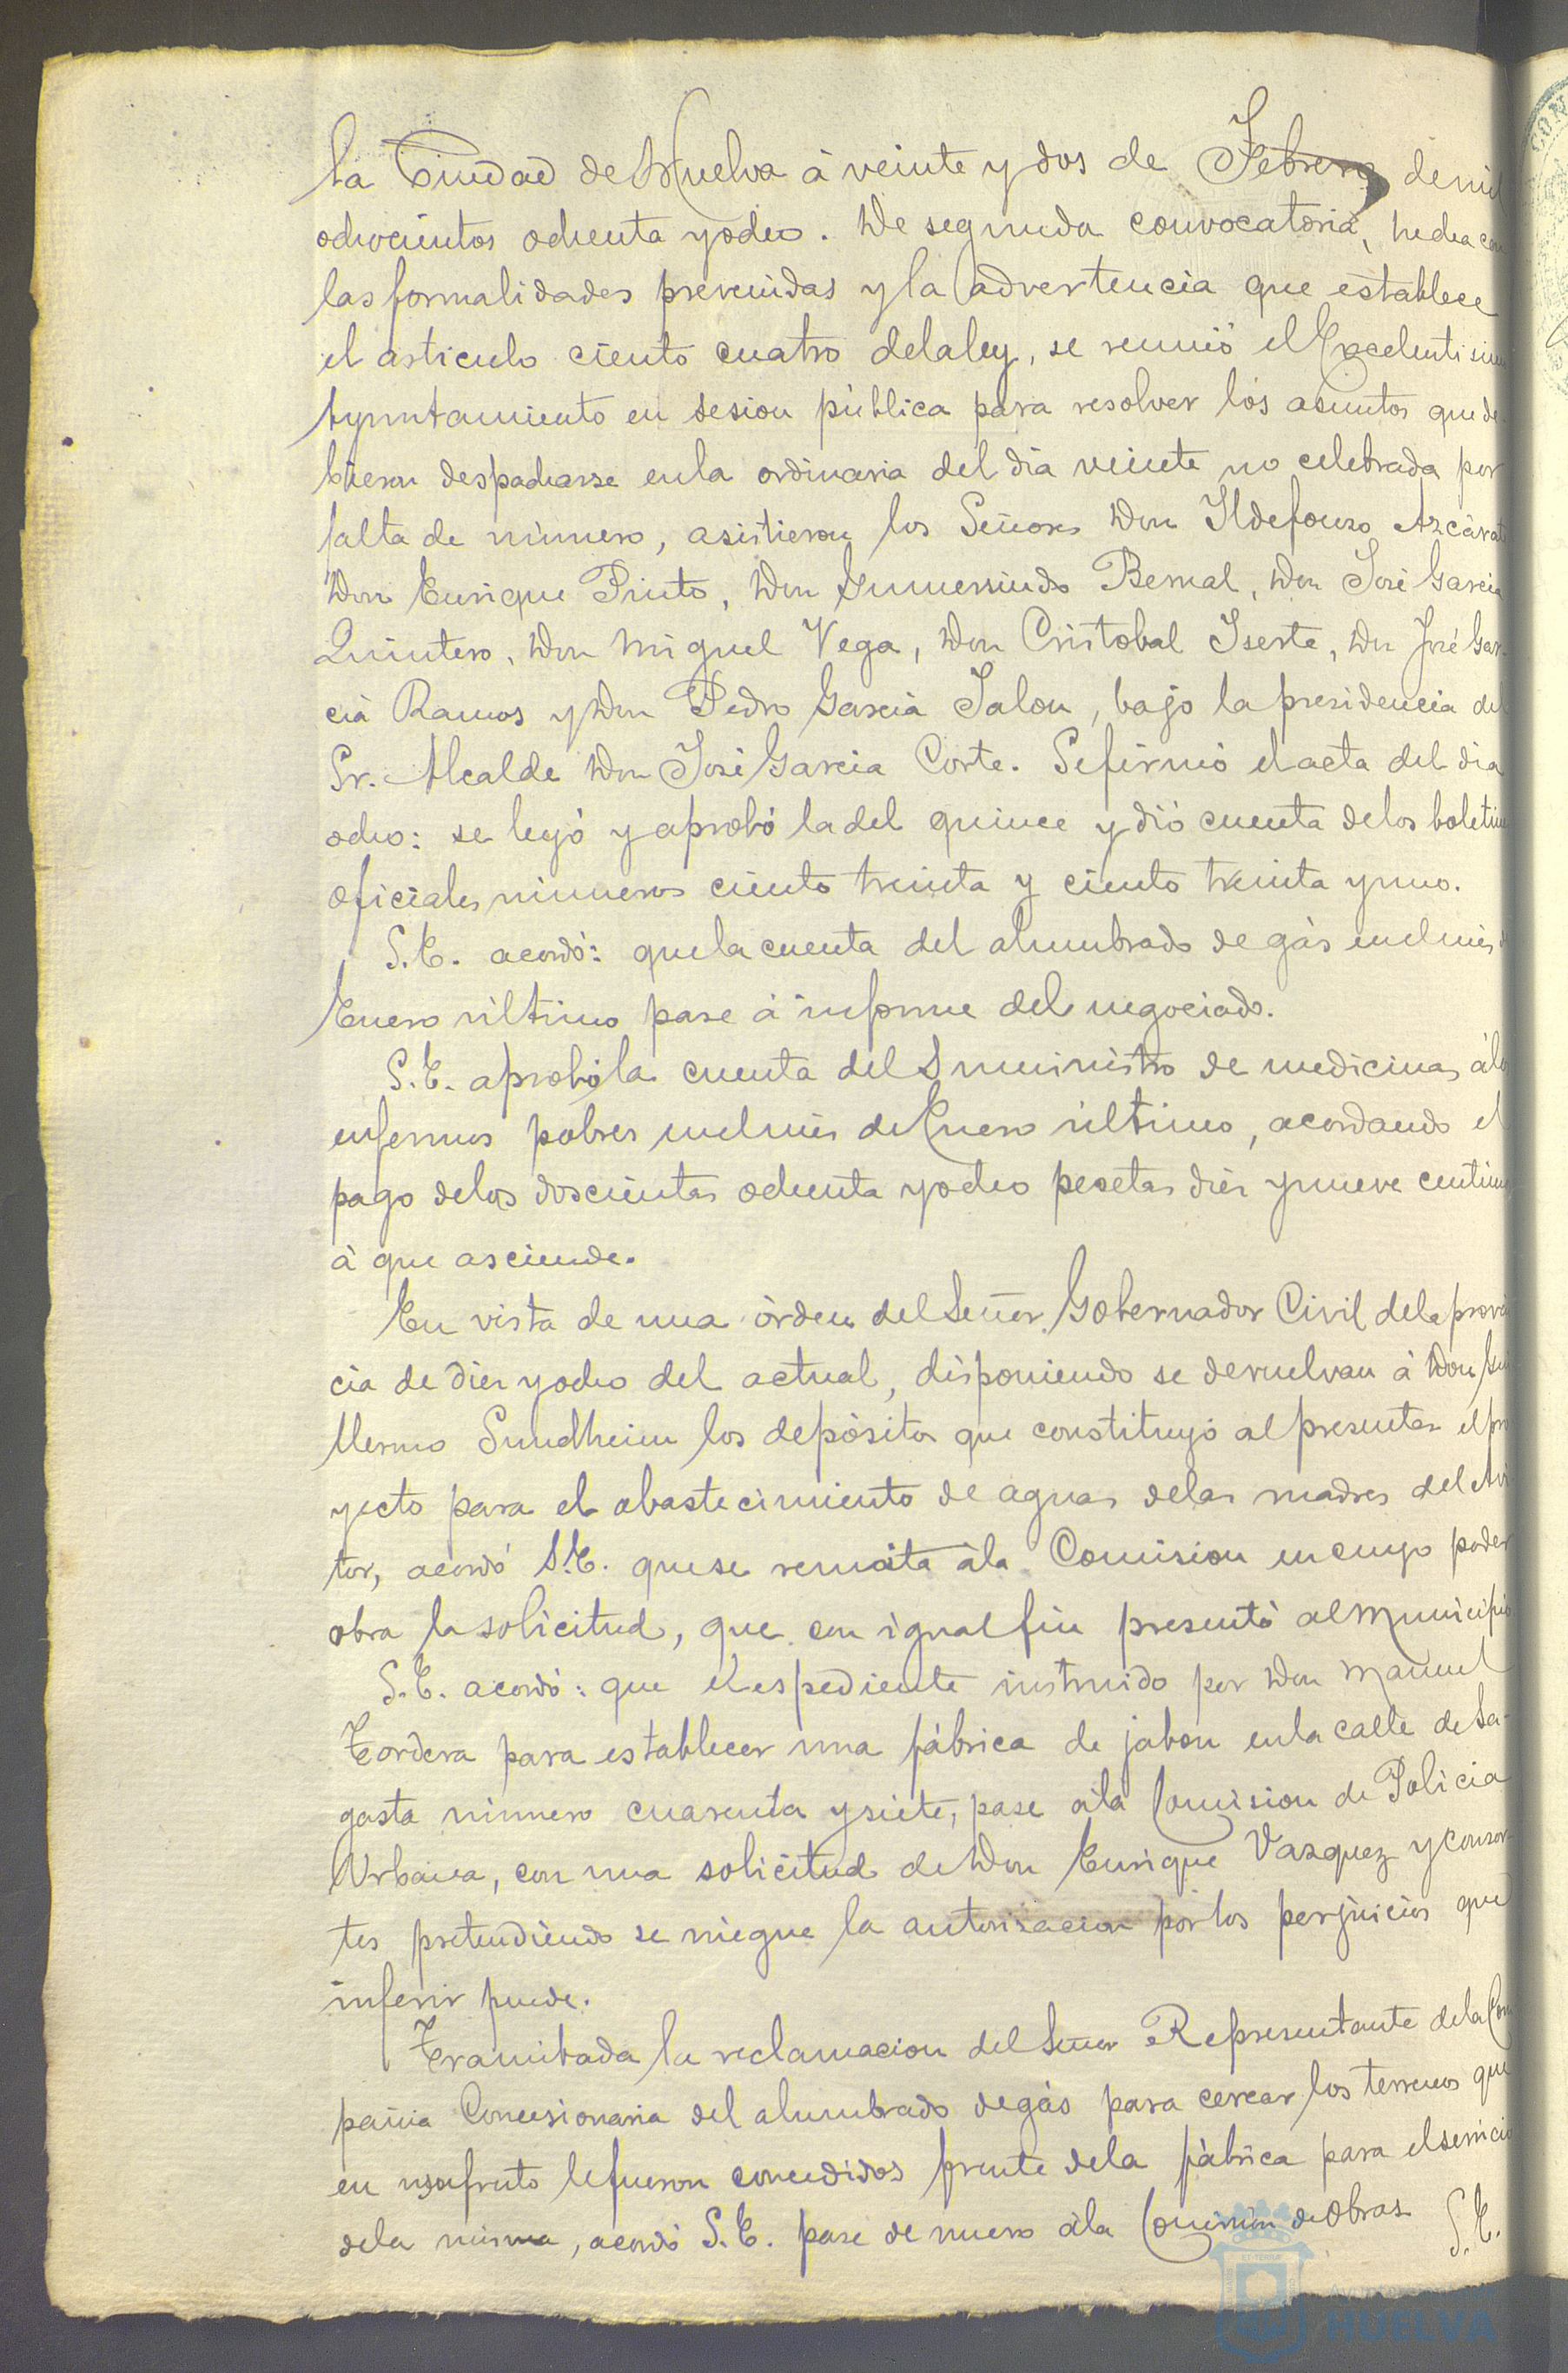 la Ciudad de Huelva à veinte y dos de Febrero de mil
ochocientos ochenta y ocho. De segunda convocatoria, hecha con
las formalidades prevenidas y la advertencia que establece
el articulo ciento cuatro de la ley, se reunió el Excelentisimo
Ayuntamiento en sesion pública para resolver los asuntos que de-
bieron despacharse en la ordinaria del dia veinte no celebrada por
falta de número, asistieron los Señores Don Ildefonso Azcárate
Don Enrique Pinto, Don Gumersindo Bernal, Don José Garcia
Quintero, Don Miguel Vega, Don Cristobal Iserte, Don José Gar-
cia Ramos y Don Pedro Garcia Jalon, bajo la presidencia del
Sr. Alcalde Don José Garcia Corte. Se firmó el acta del dia
ocho: se leyó y aprobó la del quince y dió cuenta de los boletines
oficiales números ciento treinta y ciento treinta y uno.
S.E. acordó: que la cuenta del alumbrado de gás en el mes de
Enero último pase á informe del negociado.
S.E. aprobó la cuenta del Suministro de medicinas á los
enfermos pobres en el mes de Enero último, acordando el
pago de los doscientas ochenta y ocho pesetas diez y nueve centimos
à que asciende.
En vista de una órden del Señor Gobernador Civil de la provin
cia de diez y ocho del actual, disponiendo se devuelvan à Don Gui
llermo Sundheim los depósitos que constituyó al presentar el pro
yecto para el abastecimiento de aguas de las madres del Avi
tor, acordó S.E. que se remita á la Comision en cuyo poder
obra la solicitud, que con igual fin presentó al Municipio
S.E. acordó: que el espediente instruido por Don Manuel
Tordera para establecer una fábrica de jabon en la calle de Sa-
gasta número cuarenta y siete, pase á la Comision de Policia
Urbana, con una solicitud de Don Enrique Vazquez y consor-
tes pretendiendo se niegue la autorizacion por los perjuicios que
inferir puede.
Tramitada la reclamacion del Señor Representante de la Com
pañia Concesionaria del alumbrado de gás para cercar los terrenos que
en usufruto le fueron concedidos frente de la fábrica para el servicio
de la misma, acordó S.E. pase de nuevo á la Comisión de Obras. S.E.
HUELVA